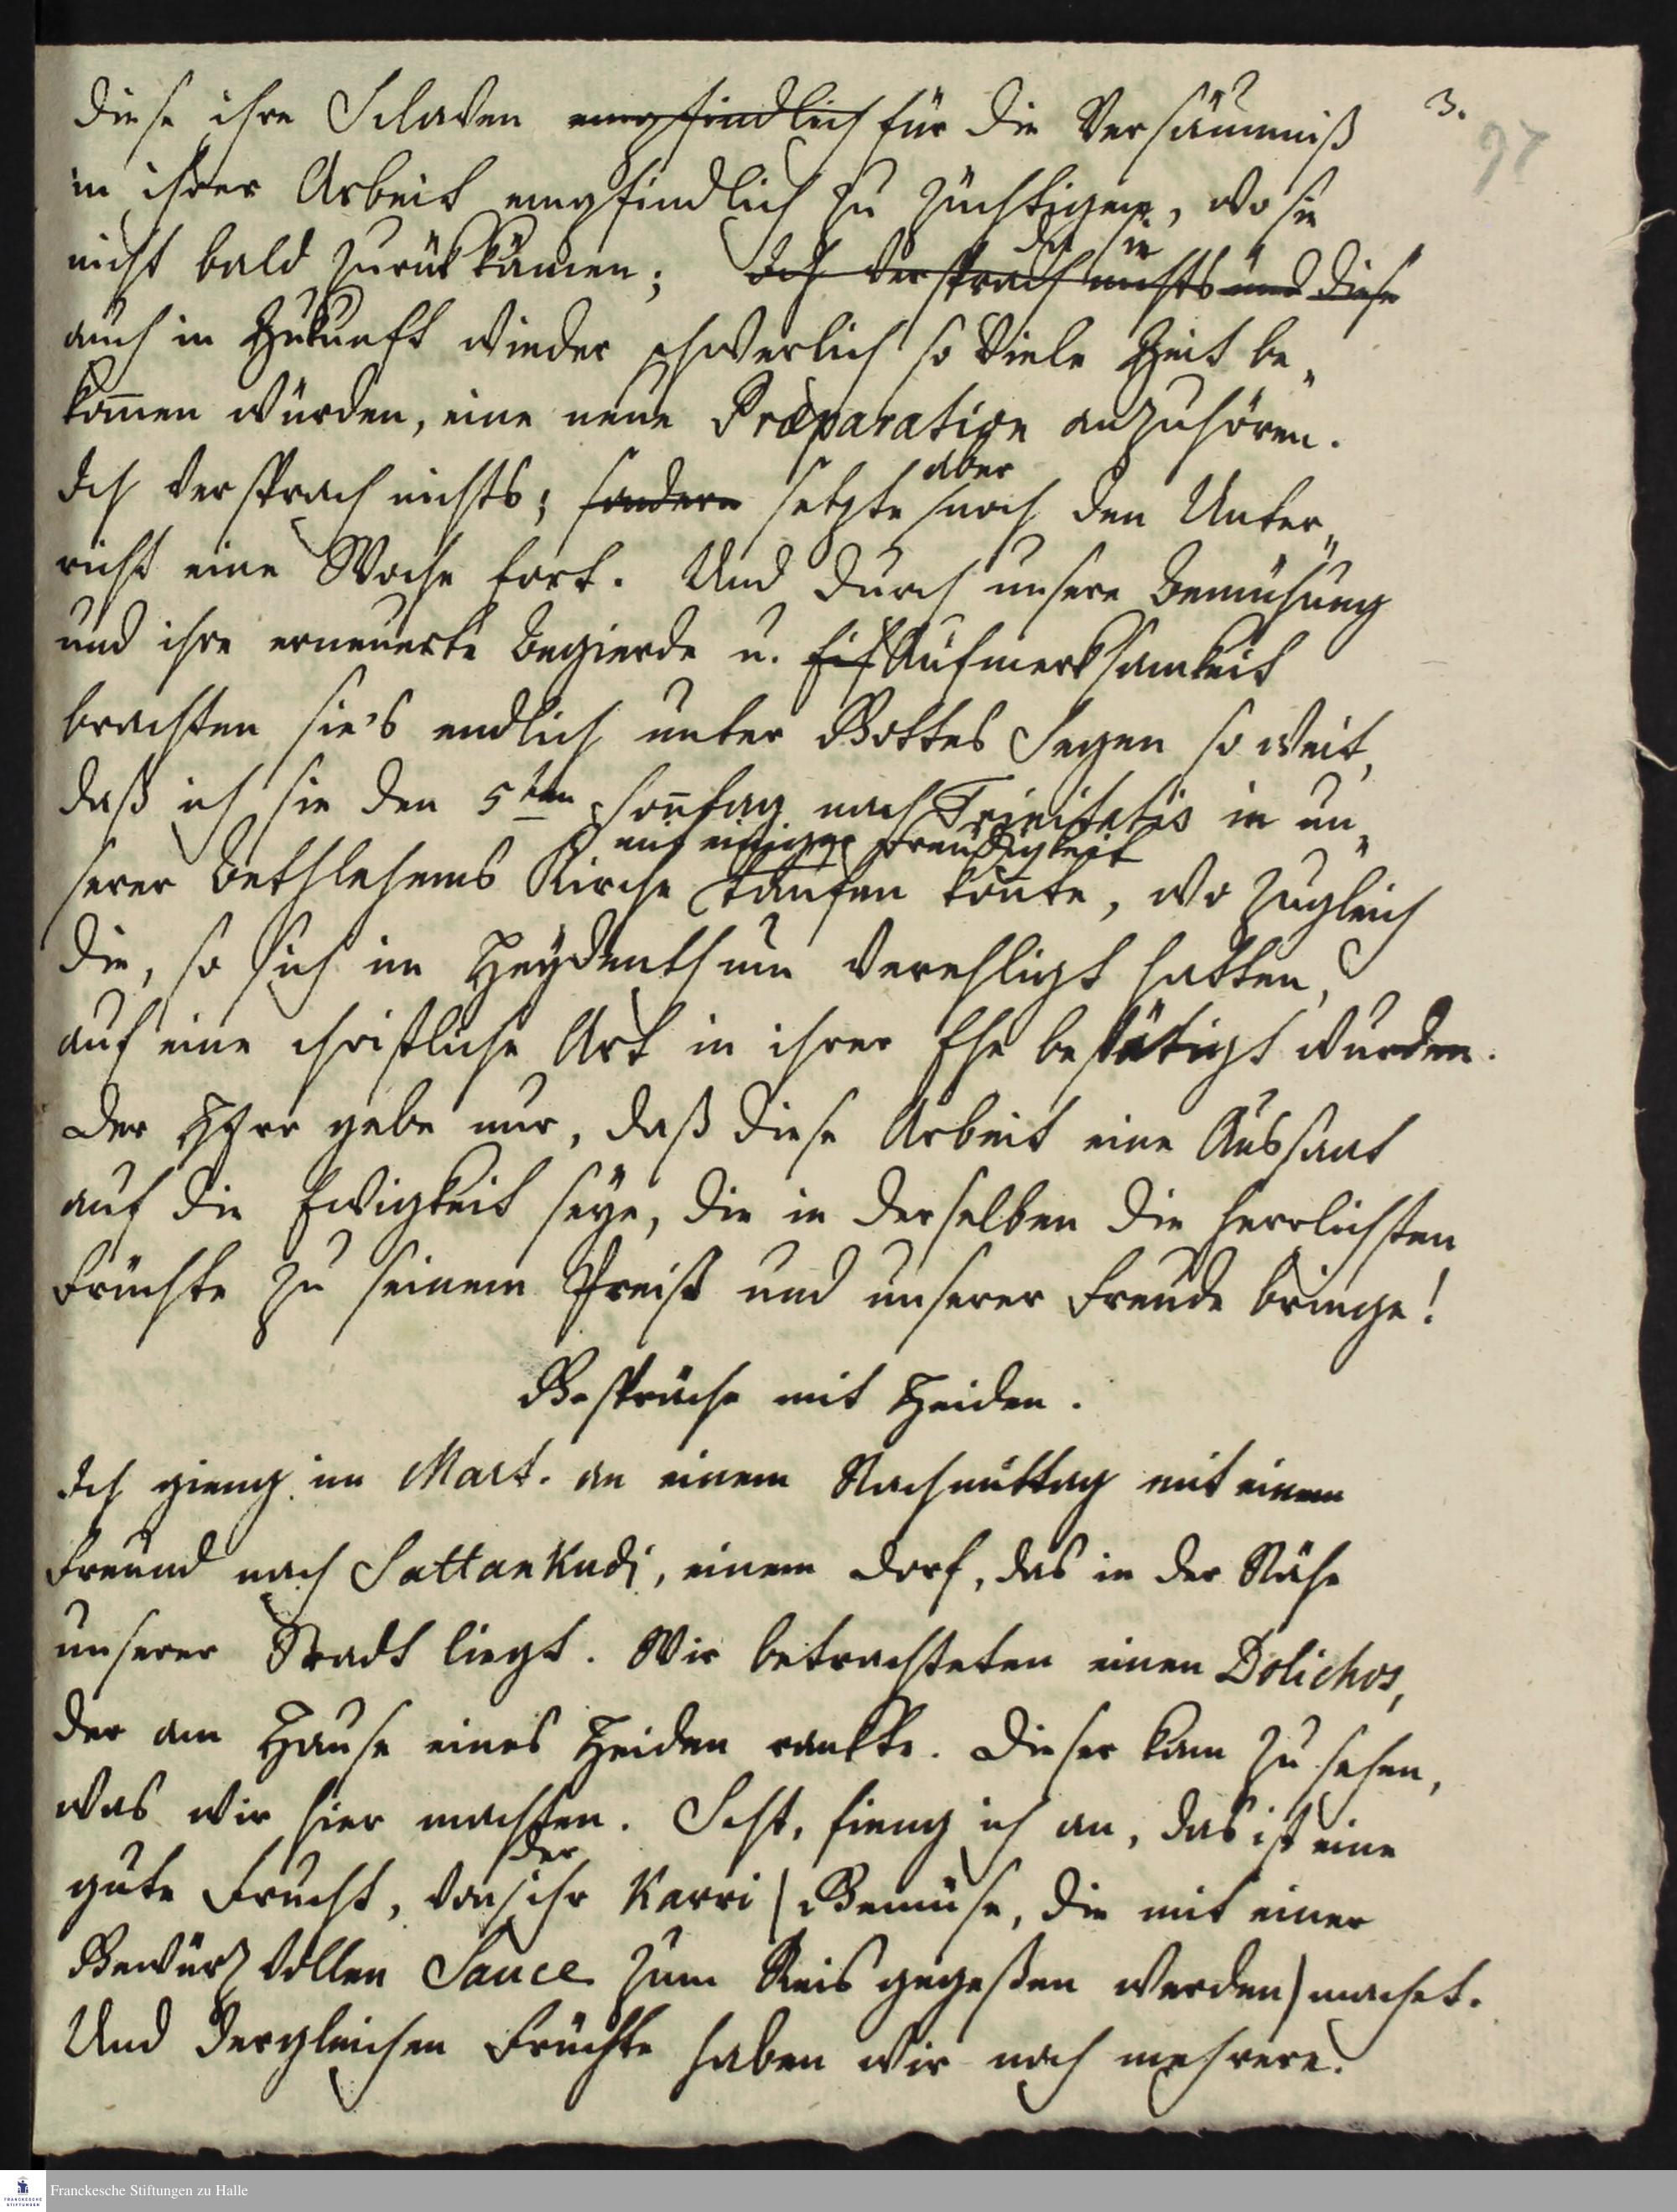 3.
97
diese ihre Sclaven empfindlich für die Versäumniß
in ihrer Arbeit empfindlich zu züchtigen, wo sie
nicht bald zurük kämen;
da sie
Ich versprach nichts und diese
auch in Zukunft wieder schwerlich so viele Zeit be„
kom̄en würden, eine neue Præparation anzuhören.
aber
Ich versprach nichts; sondern setzte noch den Unter„
richt eine Woche fort. Und durch unsere Bemühung
und ihre erneuerte Begierde u. Eif Aufmerksamkeit
brachten sie's endlich unter Gottes Segen so weit,
daß ich sie den 5ten Son̄tag nach Trinitatis in un„
mit einiger Freudigkeit
serer Bethlehems Kirche taufen kon̄te, wo zugleich
die, so sich im Heydenthum verehligt hatten,
auf eine christliche Art in ihrer Ehe bestätigt wurden.
Der HErr gebe nur, daß diese Arbeit eine Aussaat
auf die Ewigkeit seye, die in derselben die herrlichsten
Früchte zu seinem Preiß und unserer Freude bringe!
Gespräche mit Heiden.
Ich gieng im Mart. an einem Nachmittag mit einem
Freund nach Sattankudi, einem Dorf, das in der Nähe
unserer Stadt liegt. Wir betrachteten einen Dolichos,
der am Hause eines Heiden rankte. Dieser kam zu sehen,
was wir hier machten. Seht, fieng ich an, das ist eine
der
gute Frucht, von ihr Karri (Gemüse, die mit einer
Gewürz vollen Sauce zum Reis gegeßen werden) machet.
Und dergleichen Früchte haben wir noch mehrere.
Franckesche Stiftungen zu Halle